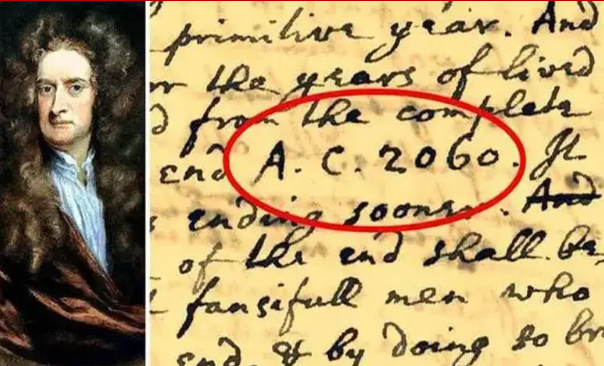 primitive year. And
r the years of lived
d from the complete
end A. C. 2060. It
ending sooner. And
of the end shall be
fansifull men who
end, & by doing so br